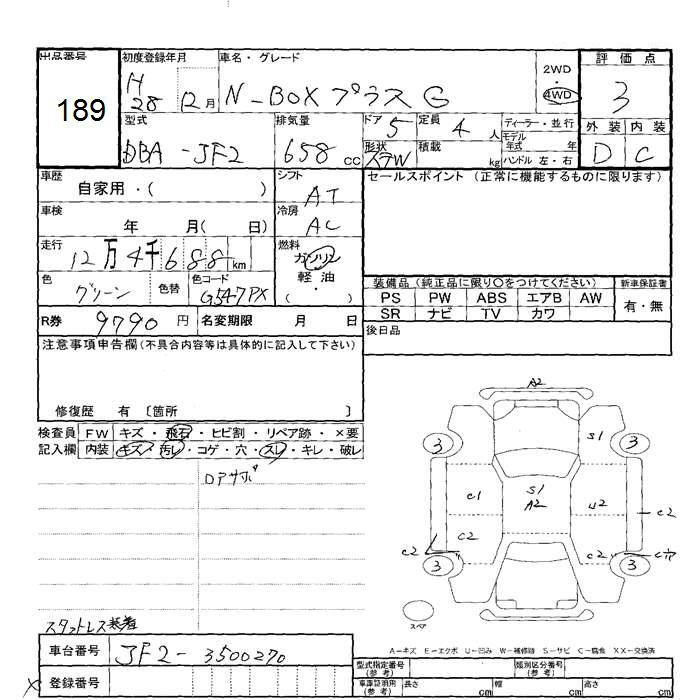 出品番号
189
初度登録年月
H
28 12月
車名・グレード
N-BOX プラス G
2WD
・
4WD
評価点
3
外装 内装
D C
型式
DBA-JF2
排気量
658 cc
ドア
5
定員
4 人
ディーラー・並行
モデル
年式 年
ハンドル 左・右
形状
STW
積載
kg
車歴
自家用・( )
シフト
AT
セールスポイント (正常に機能するものに限ります)
車検
年 月( 日)
冷房
AC
走行
12万4千688km
燃料
ガソリン
軽油
( )
色
グリーン
色替
色コード
G547PX
装備品 (純正品に限り○をつけてください)
新車保証書
PS PW ABS エアB AW
有・無
SR ナビ TV カワ
R券 9790 円
名変期限 月 日
後日品
注意事項申告欄(不具合内容等は具体的に記入して下さい)
修復歴 有 〔箇所 〕
検査員 FW キズ・飛石・ヒビ割・リペア跡・×要
記入欄 内装 キズ・汚レ・コゲ・穴・スレ・キレ・破レ
A2
S1
3
3
C1
S1
A2
U2
C2
C2
C2
C2
3
3
スペア
スタッドレス装着
車台番号 JF2-3500270
× 登録番号
A-キズ E-エクボ U-凹み W-補修跡 S-サビ C-腐食 XX-交換済
型式指定番号
(参考)
類別区分番号
(参考)
車庫証明用
(参考)
長さ cm
幅 cm
高さ cm